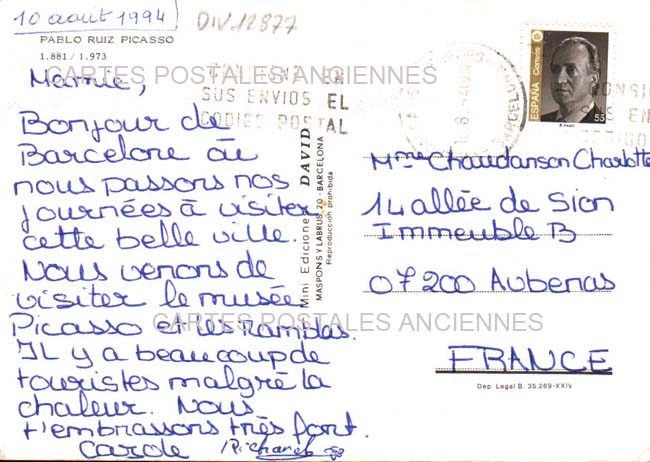 10 aout 1994
DIV12877
PABLO RUIZ PICASSO
1.881 / 1.973
CARTES POSTALES ANCIENNES
Mamie,
Bonjour de
Barcelone où
nous passons nos
journées à visiter
cette belle ville.
Nous venons de
visiter le musée
Picasso et les Ramblas.
Il y a beaucoup de
touristes malgré la
chaleur. Nous
t'embrassons très fort.
Carole Richard
SUS ENVIOS EL
CODIGO POSTAL
Mini Ediciones DAVID
MASPONS Y LABRUS, 20 - BARCELONA
Reproducción prohibida
BARCELONA
ESPAÑA
Correos
55
CONSI
SUS EN
CODIGO
Mme Chaudanson Charlotte
14 allée de Sion
Immeuble B
07200 Aubenas
CARTES POSTALES ANCIENNES
FRANCE
Dep. Legal B. 35.269-XXIV